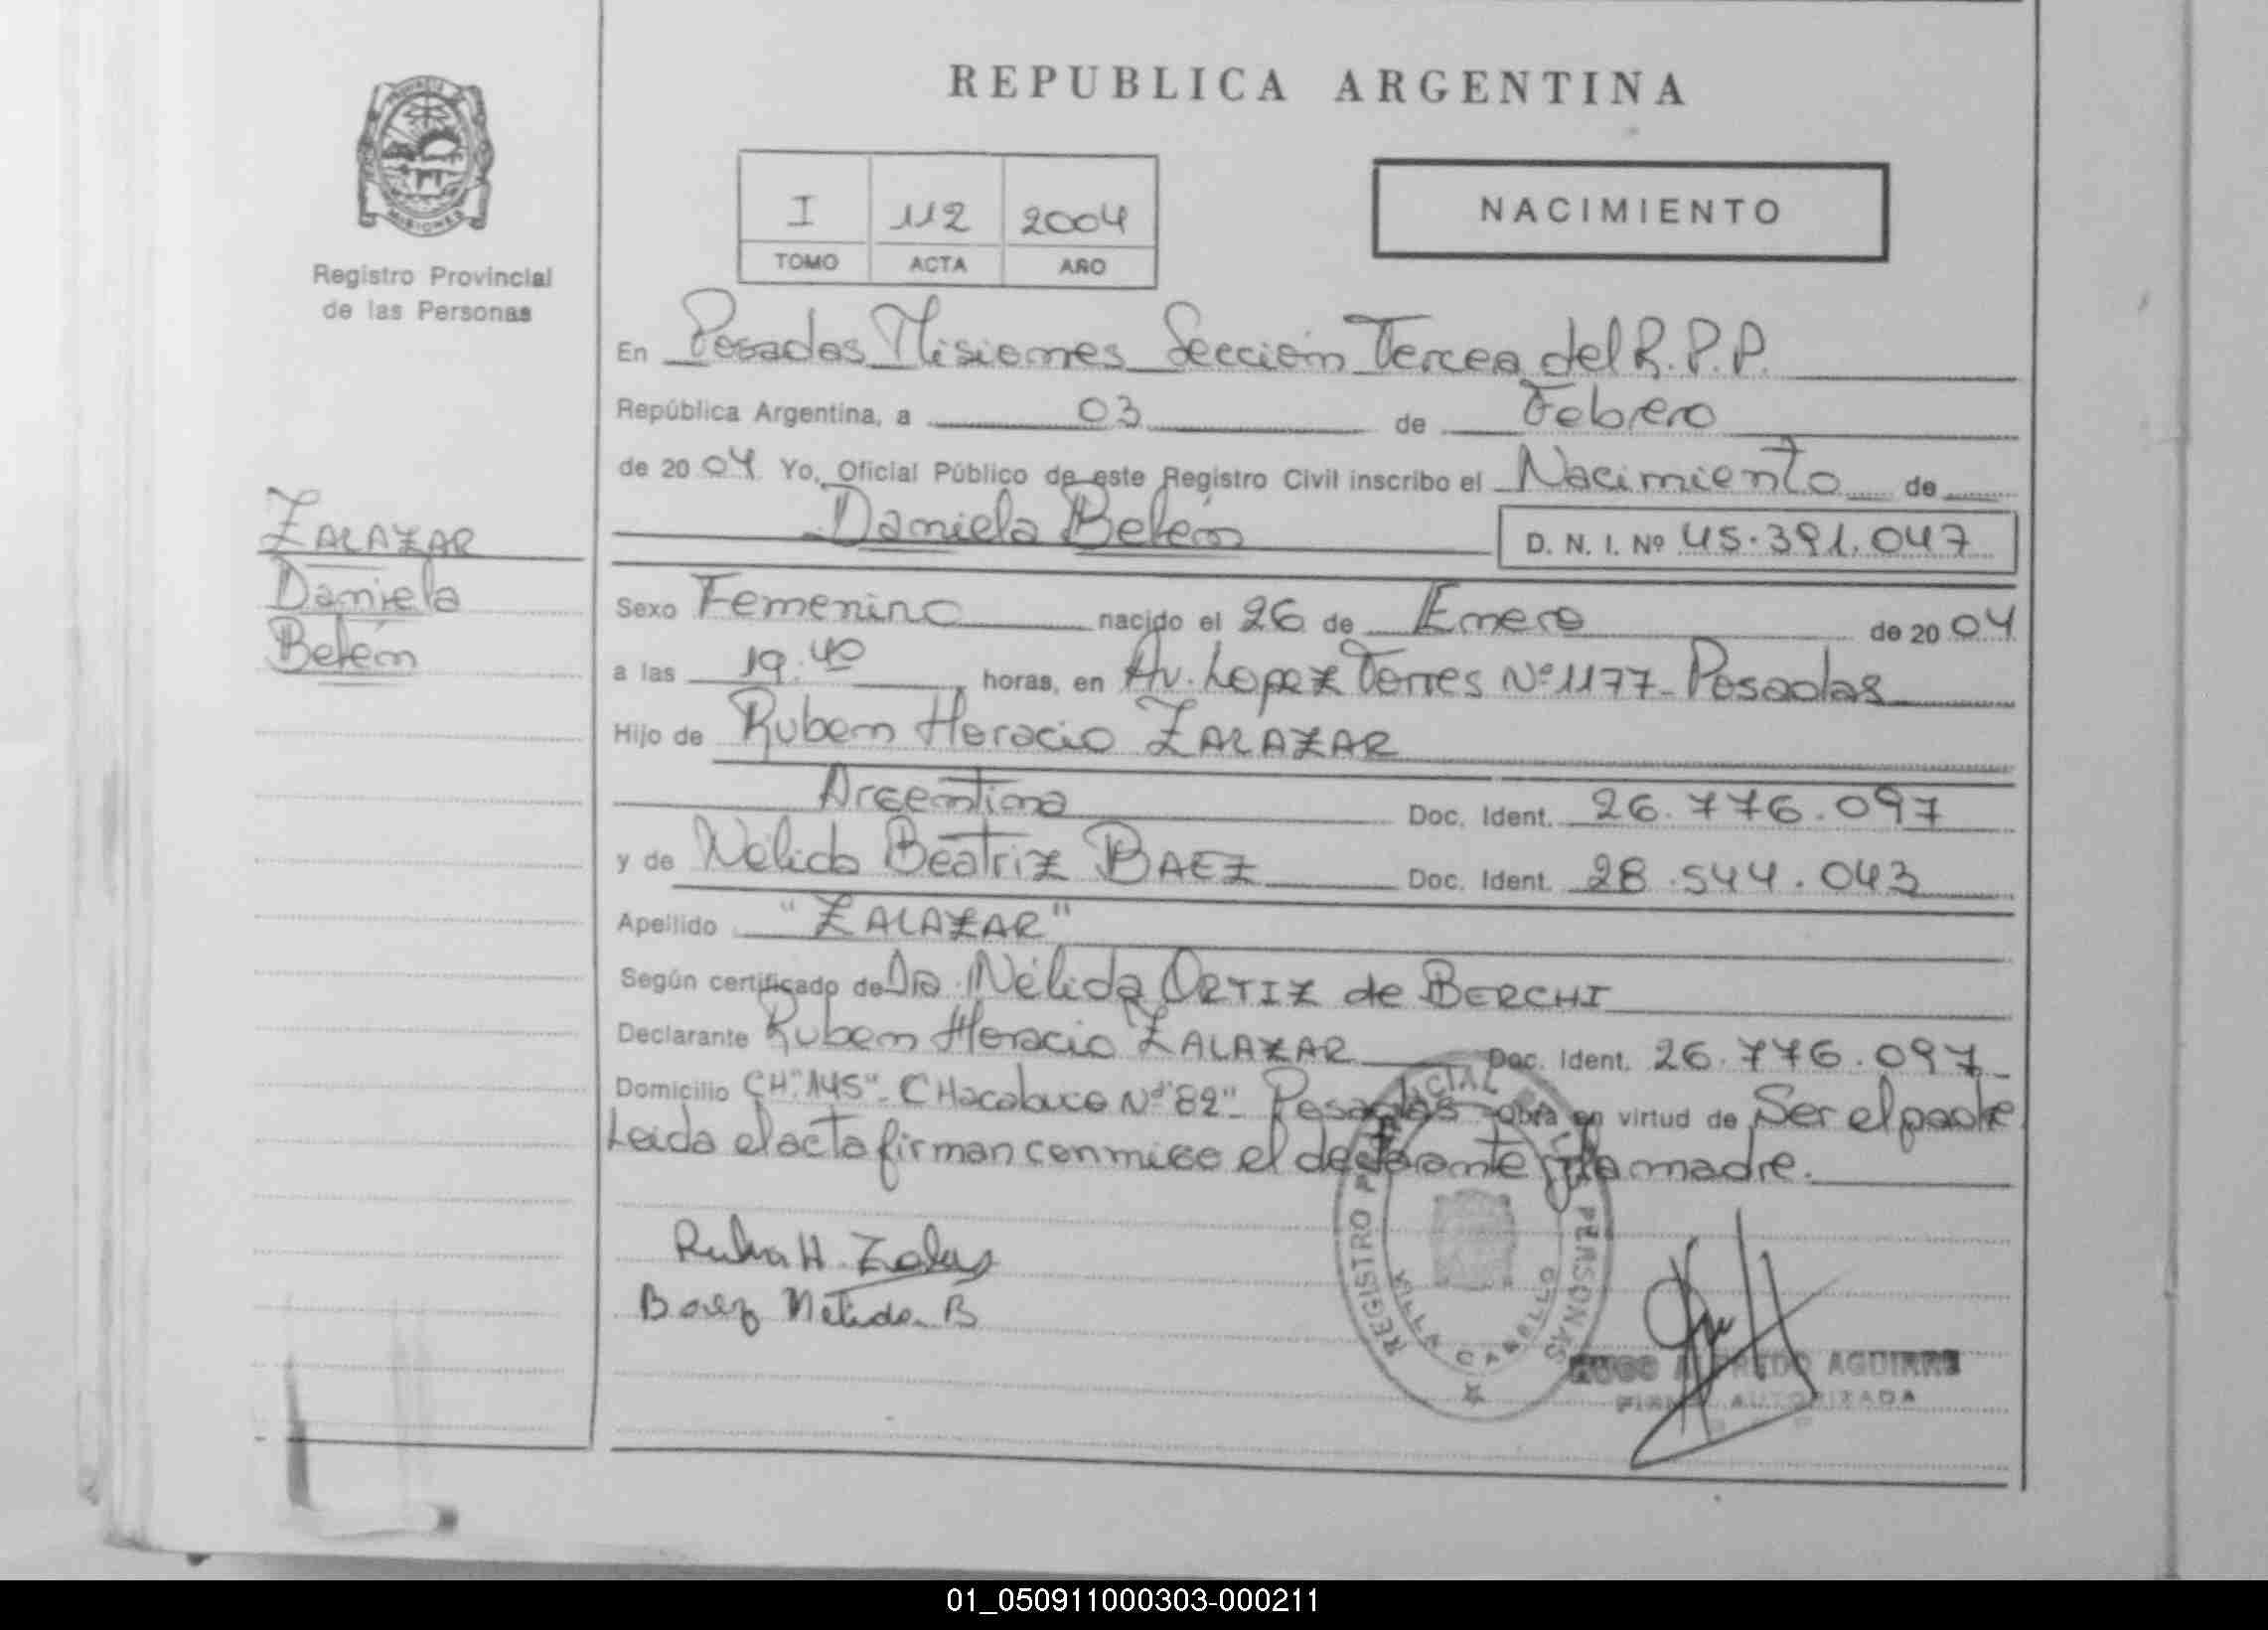 REPUBLICA ARGENTINA
PROVINCIA DE
MISIONES
Registro Provincial
de las Personas
I 112 2004
TOMO ACTA AÑO
NACIMIENTO
En Posadas Misiones Sección Tercea del R.P.P.
República Argentina, a 03 de Febrero
de 20 04 Yo, Oficial Público de este Registro Civil inscribo el Nacimiento de
Daniela Belén D. N. I. Nº 45.391.047
ZALAZAR
Daniela
Belén
Sexo Femenino nacido el 26 de Enero de 20 04
a las 19.40 horas, en Av. Lopez Torres Nº 1177 - Posadas
Hijo de Ruben Horacio ZALAZAR
Argentina Doc. Ident. 26.776.097
y de Nélida Beatriz BAEZ Doc. Ident. 28.544.043
Apellido "ZALAZAR"
Según certificado de Dra. Nélida ORTIZ de BERCHI
Declarante Ruben Horacio ZALAZAR Doc. Ident. 26.776.097
Domicilio CH "145" - CHacabuco Nº "82" - Posadas obra en virtud de Ser el padre
Leida el acta firman conmigo el declarante y la madre.
Ruben H. Zalazar
Baez Nelida B
REGISTRO PERSONAS
VILLA CABELLO
HUGO ALFREDO AGUIRRE
FIRMA AUTORIZADA
01_050911000303-000211